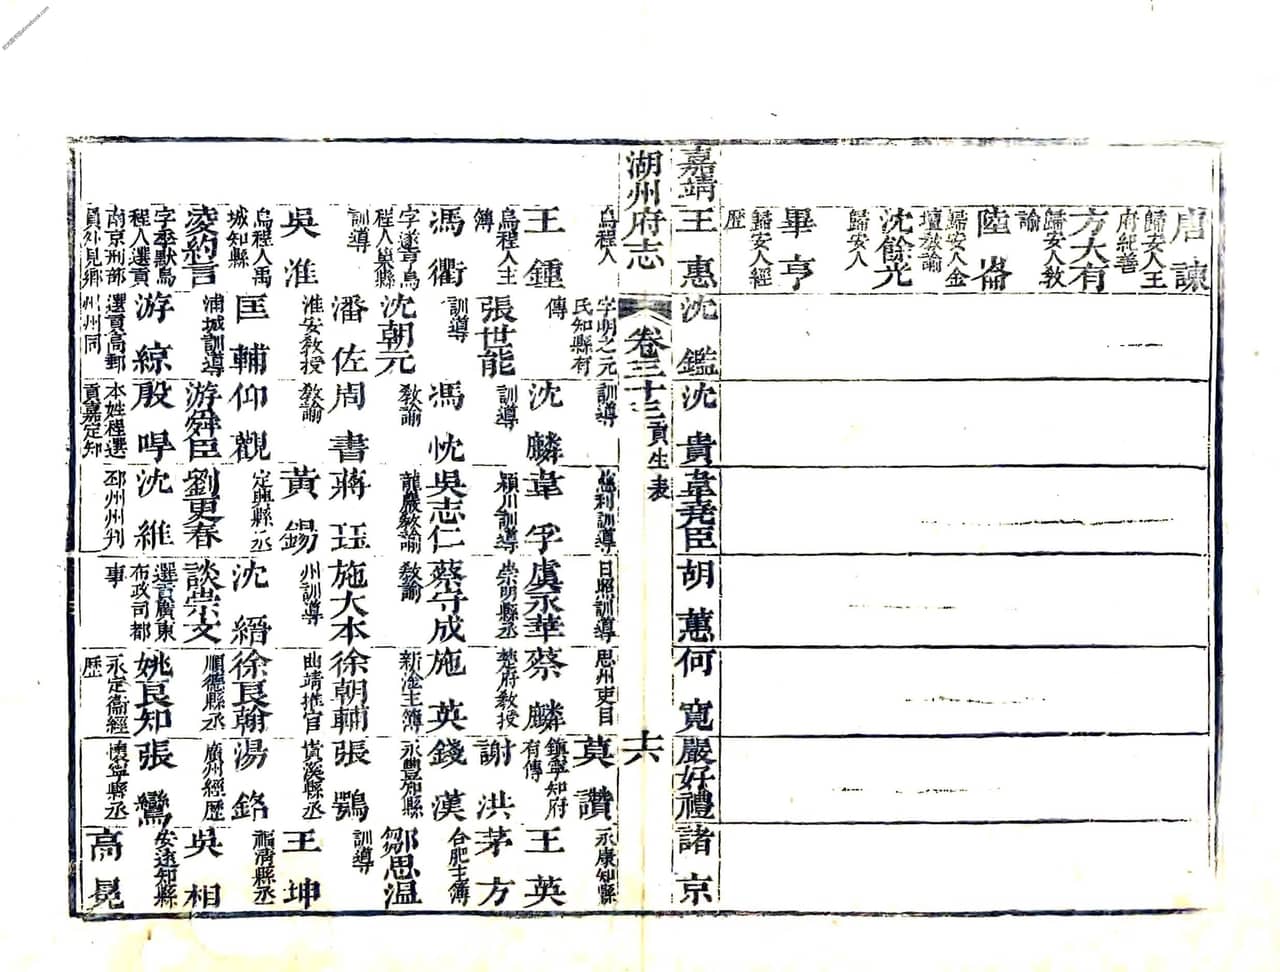 唐諫
歸安人王
府紀善
方大有
歸安人教
諭
陸崙
歸安人金
壇教諭
沈餘光
歸安人
畢亨
歸安人經
歷
嘉靖
湖州府志
卷三十三
貢生表
十六
王惠
烏程人
王鍾
烏程人主
簿
馮衢
字遂亨烏
程人嵊縣
訓導
吳淮
烏程人禹
城知縣
淩約言
字季默烏
程人選貢
南京刑部
員外見鄉
沈鑑
字明之元
氏知縣有
傳
張世能
訓導
沈朝元
潘佐
淮安教授
匡輔
浦城訓導
游綜
選貢高郵
州州同
沈貴
訓導
沈麟
訓導
馮忱
教諭
周書
教諭
仰觀
游舜臣
殷㫤
本姓程選
貢嘉定知
韋堯臣
慈利訓導
韋孚
潁川訓導
吳志仁
龍巖教諭
蔣珏
黃錫
定興縣丞
劉更春
沈維
邳州州判
胡蕙
日照訓導
虞永華
崇明縣丞
蔡守成
教諭
施大本
州訓導
沈縉
談崇文
選貢廣東
布政司都
事
何寬
思州吏目
蔡麟
楚府教授
施英
新淦主簿
徐朝輔
曲靖推官
徐良翰
順德縣丞
姚良知
永定衞經
歷
嚴好禮
莫讚
鎮寧知府
有傳
謝洪
錢漢
永豐知縣
張鶚
貴溪縣丞
湯銘
廣州經歷
張鸞
懷寧縣丞
諸京
永康知縣
王英
茅方
合肥主簿
鄒思溫
訓導
王坤
福清縣丞
吳相
安遠知縣
高冕